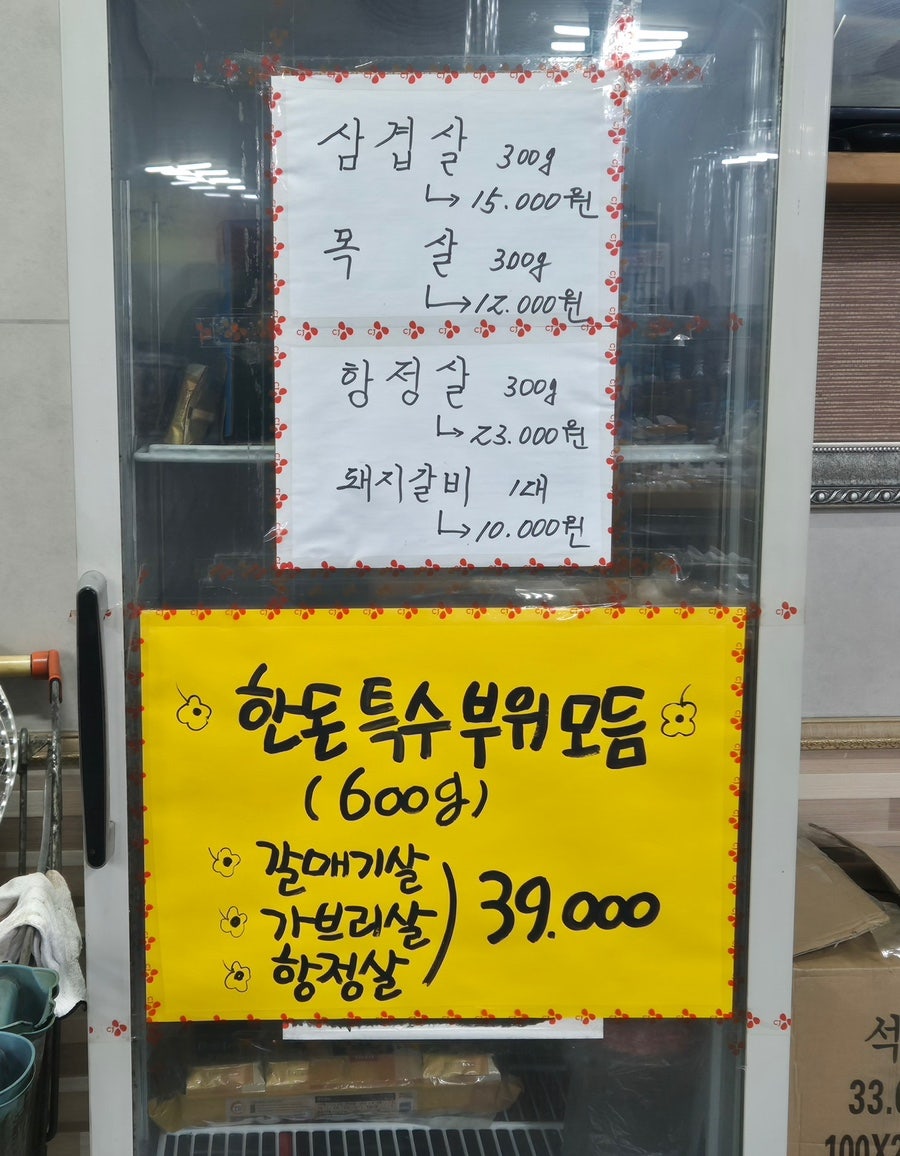 삼겹살 300g
↳ 15.000원
목 살 300g
↳ 12.000원
항정살 300g
↳ 23.000원
돼지갈비 1대
↳ 10.000원
한돈특수부위모듬
(600g)
갈매기살
가브리살
항정살
) 39.000
석
33.
100X